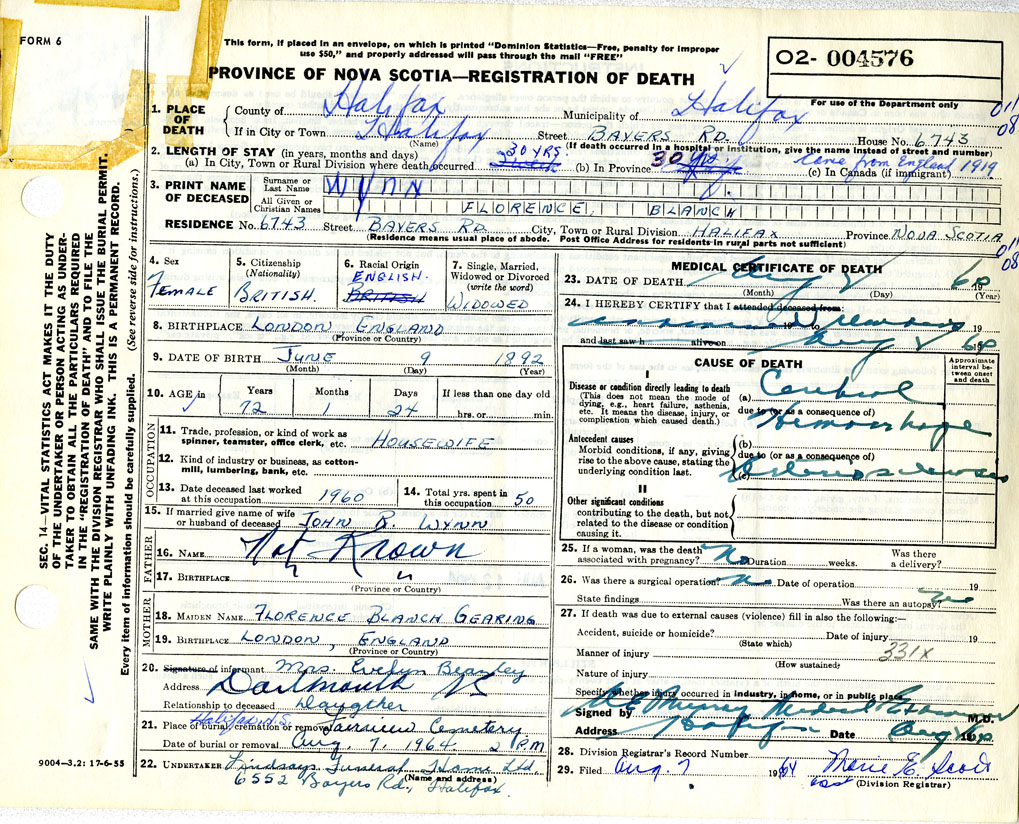 FORM 6
This form, if placed in an envelope, on which is printed "Dominion Statistics—Free, penalty for improper
use $50," and properly addressed will pass through the mail "FREE"
PROVINCE OF NOVA SCOTIA—REGISTRATION OF DEATH
02- 004576
For use of the Department only
1. PLACE OF DEATH
County of Halifax Municipality of Halifax
If in City or Town Halifax Street BAYERS RD. House No. 6743
(Name) (If death occurred in a hospital or institution, give the name instead of street and number)
2. LENGTH OF STAY (in years, months and days)
(a) In City, Town or Rural Division where death occurred 30 YRS (b) In Province 30 (c) In Canada (if immigrant) Came from England 1919
3. PRINT NAME OF DECEASED
Surname or Last Name WYNN
All Given or Christian Names FLORENCE BLANCH
RESIDENCE No. 6743 Street BAYERS RD. City, Town or Rural Division HALIFAX Province NOVA SCOTIA
(Residence means usual place of abode. Post Office Address for residents in rural parts not sufficient)
4. Sex
FEMALE
5. Citizenship
(Nationality)
BRITISH.
6. Racial Origin
ENGLISH.
BRITISH
7. Single, Married, Widowed or Divorced
(write the word)
WIDOWED
8. BIRTHPLACE LONDON, ENGLAND
(Province or Country)
9. DATE OF BIRTH JUNE 9 1892
(Month) (Day) (Year)
10. AGE in Years Months Days If less than one day old
72 1 24 hrs. or min.
OCCUPATION
11. Trade, profession, or kind of work as
spinner, teamster, office clerk, etc. HOUSEWIFE
12. Kind of industry or business, as cotton-
mill, lumbering, bank, etc.
13. Date deceased last worked
at this occupation 1960
14. Total yrs. spent in
this occupation 50
15. If married give name of wife
or husband of deceased JOHN R. WYNN
FATHER
16. NAME Not Known
17. BIRTHPLACE " "
(Province or Country)
MOTHER
18. MAIDEN NAME FLORENCE BLANCH GEARING
19. BIRTHPLACE LONDON, ENGLAND
(Province or Country)
20. Signature of informant Mrs. Evelyn
Address Dartmouth NS
Relationship to deceased Daughter
21. Place of burial, cremation or removal Halifax N.S. Fairview Cemetery
Date of burial or removal Aug. 7, 1964 2 PM
22. UNDERTAKER Lindsays Funeral Home Ltd.
(Name and address)
6552 Bayers Rd., Halifax.
9004-3.2: 17-6-55
MEDICAL CERTIFICATE OF DEATH
23. DATE OF DEATH Aug 19
(Month) (Day) (Year)
24. I HEREBY CERTIFY that I attended deceased from:
19 to 19
and last saw h alive on 19
CAUSE OF DEATH
Approximate interval between onset and death
I
Disease or condition directly leading to death
(This does not mean the mode of
dying, e.g., heart failure, asthenia,
etc. It means the disease, injury, or
complication which caused death.)
(a) Cerebral
due to (or as a consequence of)
Hemorrhage
Antecedent causes
Morbid conditions, if any, giving
rise to the above cause, stating the
underlying condition last.
(b)
due to (or as a consequence of)
(c) Arteriosclerosis
II
Other significant conditions
contributing to the death, but not
related to the disease or condition
causing it.
25. If a woman, was the death
associated with pregnancy? No Duration weeks. Was there
a delivery?
26. Was there a surgical operation? No Date of operation 19
State findings Was there an autopsy? No
27. If death was due to external causes (violence) fill in also the following:—
Accident, suicide or homicide? Date of injury 19
(State which)
Manner of injury 331X
(How sustained)
Nature of injury
Specify whether injury occurred in industry, in home, or in public place
Signed by Murray Medical Examiner M.D.
Address Halifax Date Aug 19
28. Division Registrar's Record Number
29. Filed Aug. 7 1964 Marie E. Scott
(Division Registrar)
SEC. 14—VITAL STATISTICS ACT MAKES IT THE DUTY
OF THE UNDERTAKER OR PERSON ACTING AS UNDER-
TAKER TO OBTAIN ALL THE PARTICULARS REQUIRED
IN THE "REGISTRATION OF DEATH" AND TO FILE THE
SAME WITH THE DIVISION REGISTRAR WHO SHALL ISSUE THE BURIAL PERMIT.
WRITE PLAINLY WITH UNFADING INK. THIS IS A PERMANENT RECORD.
Every item of information should be carefully supplied. (See reverse side for instructions.)